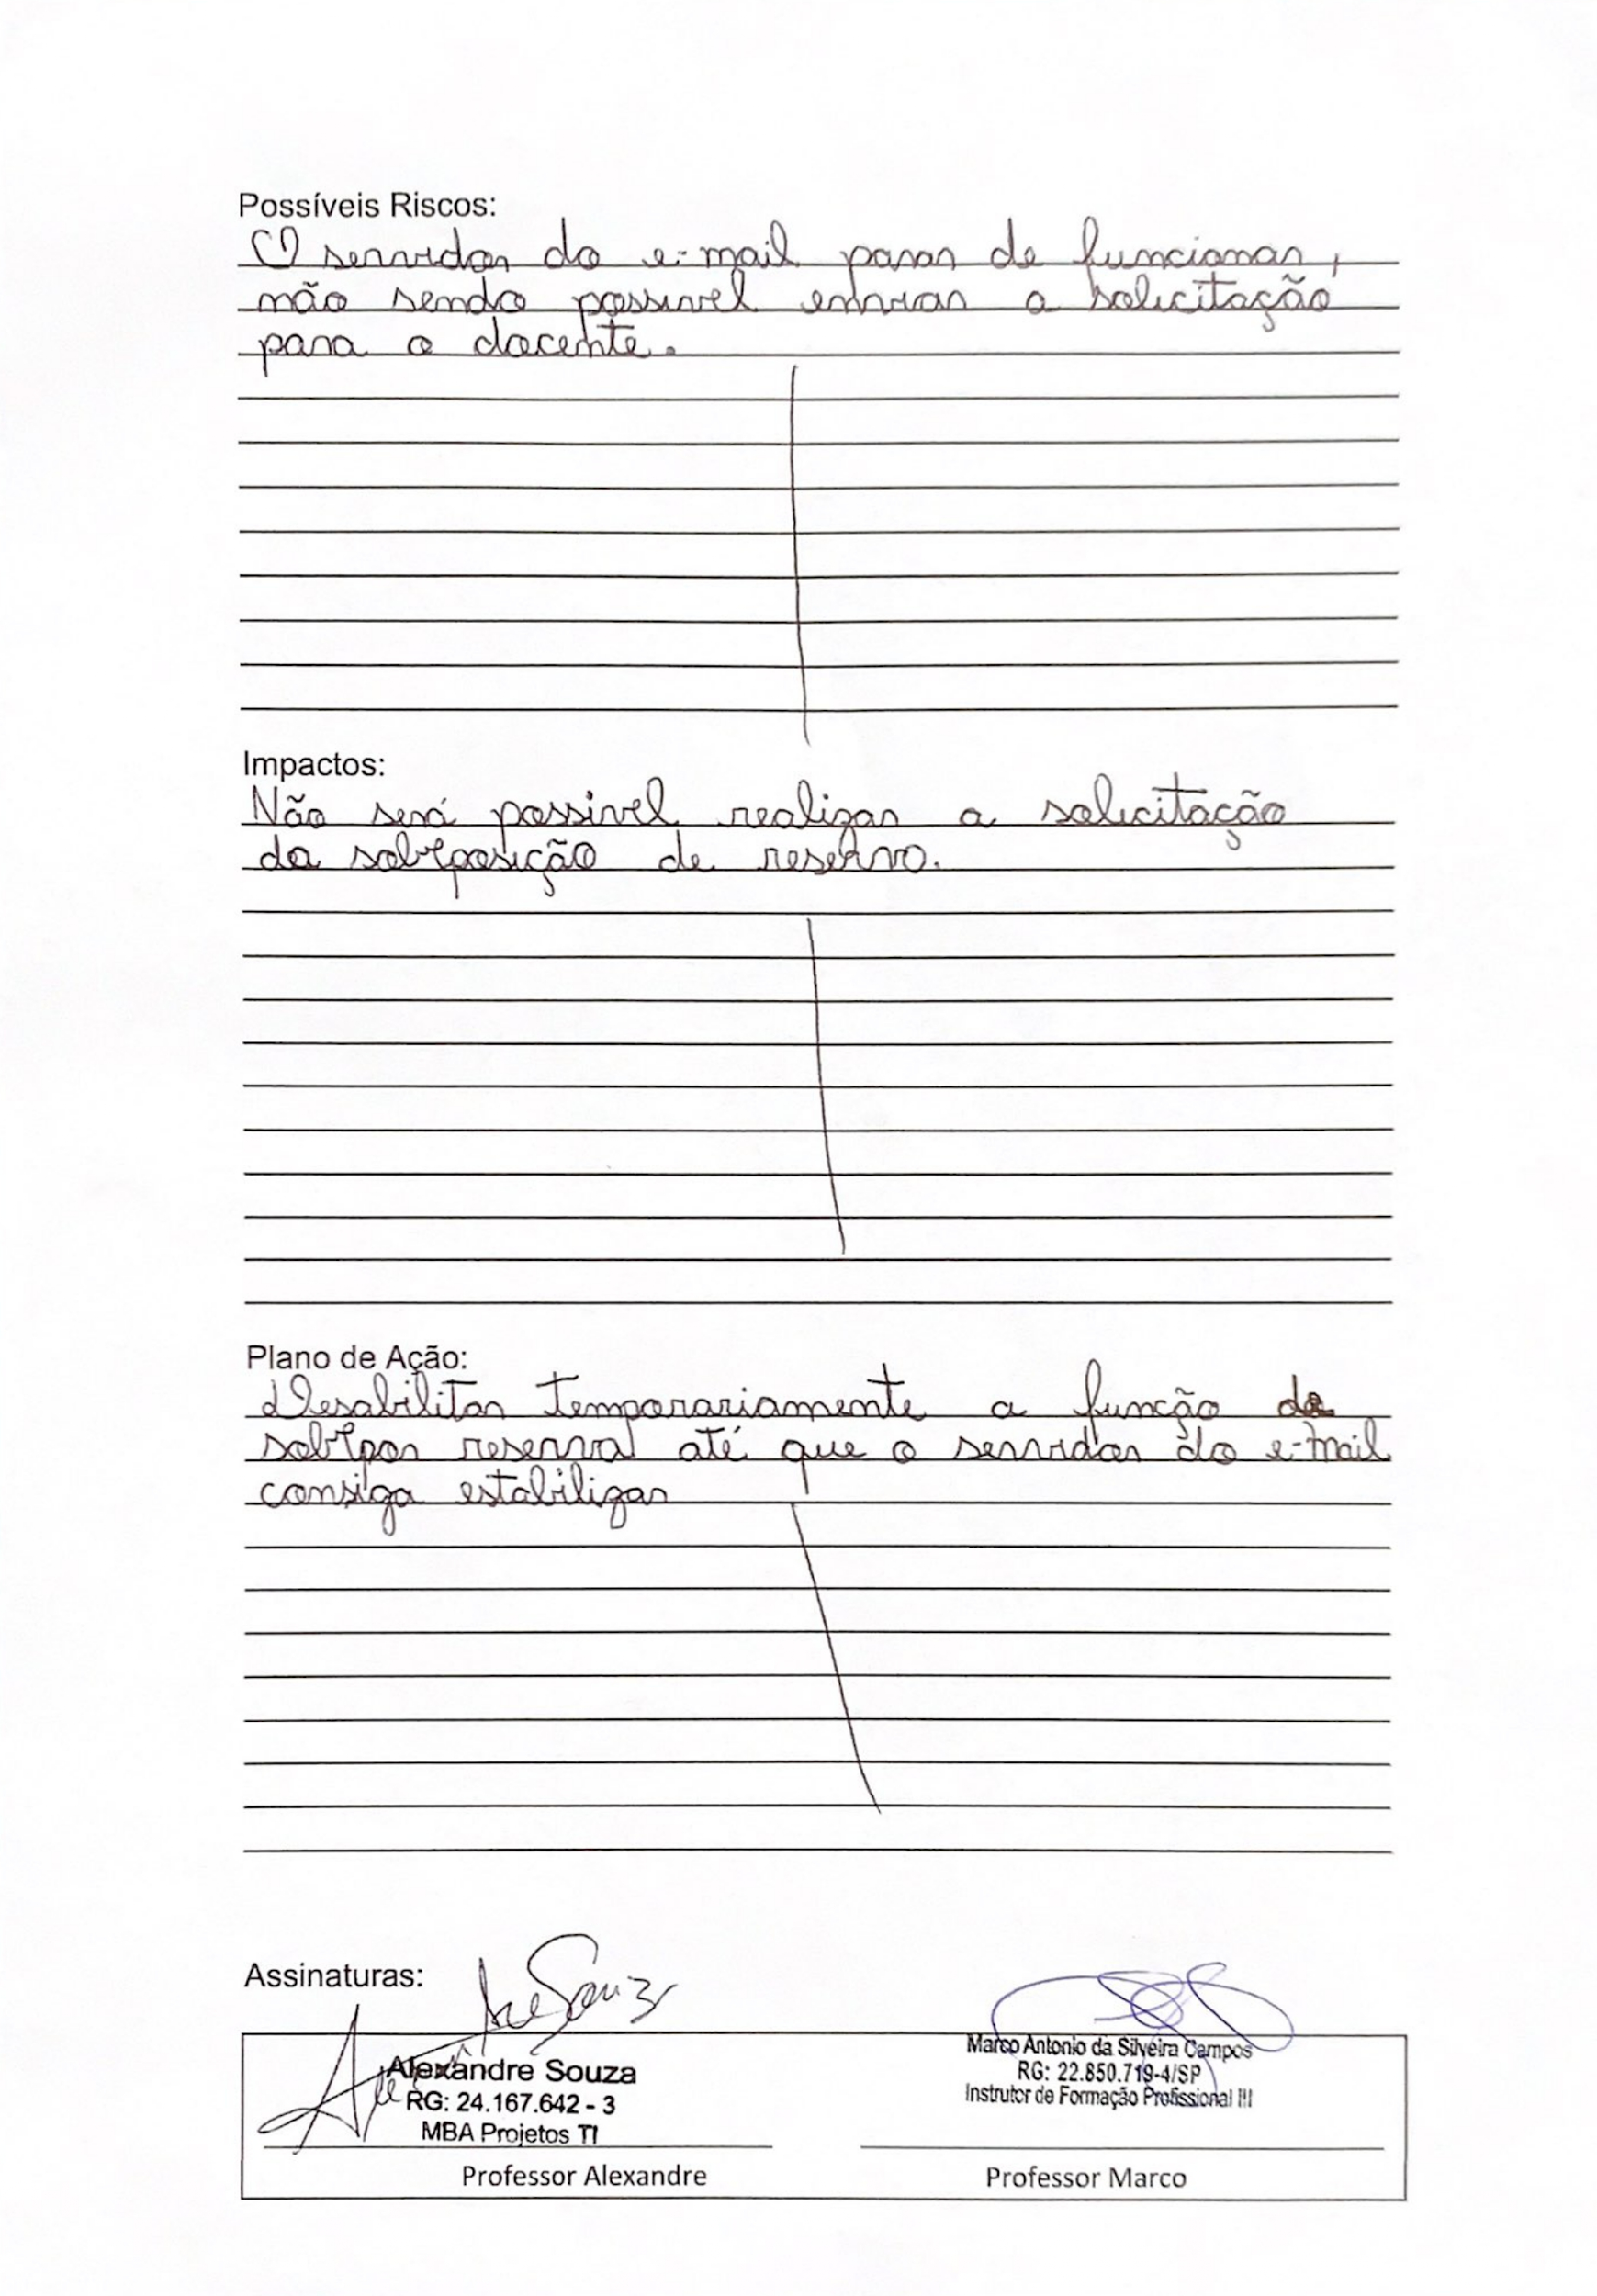 Possíveis Riscos:
O servidor do e-mail parar de funcionar,
não sendo possivel enviar a solicitação
para o docente.
Impactos:
Não será possivel realizar a solicitação
da sobreposição de reserva.
Plano de Ação:
Desabilitar temporariamente a função de
sobrepor reserva até que o servidor do e-mail
consiga estabilizar
Assinaturas:
Ale Souza
Alexandre Souza
RG: 24.167.642 - 3
MBA Projetos TI
Professor Alexandre
Marco Antonio da Silveira Campos
RG: 22.850.719-4/SP
Instrutor de Formação Profissional III
Professor Marco